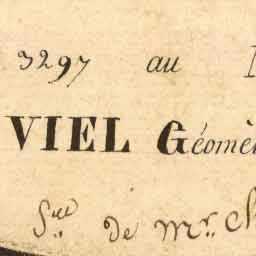 3297 au
VIEL Géomè
Sr. de Mr. Ch